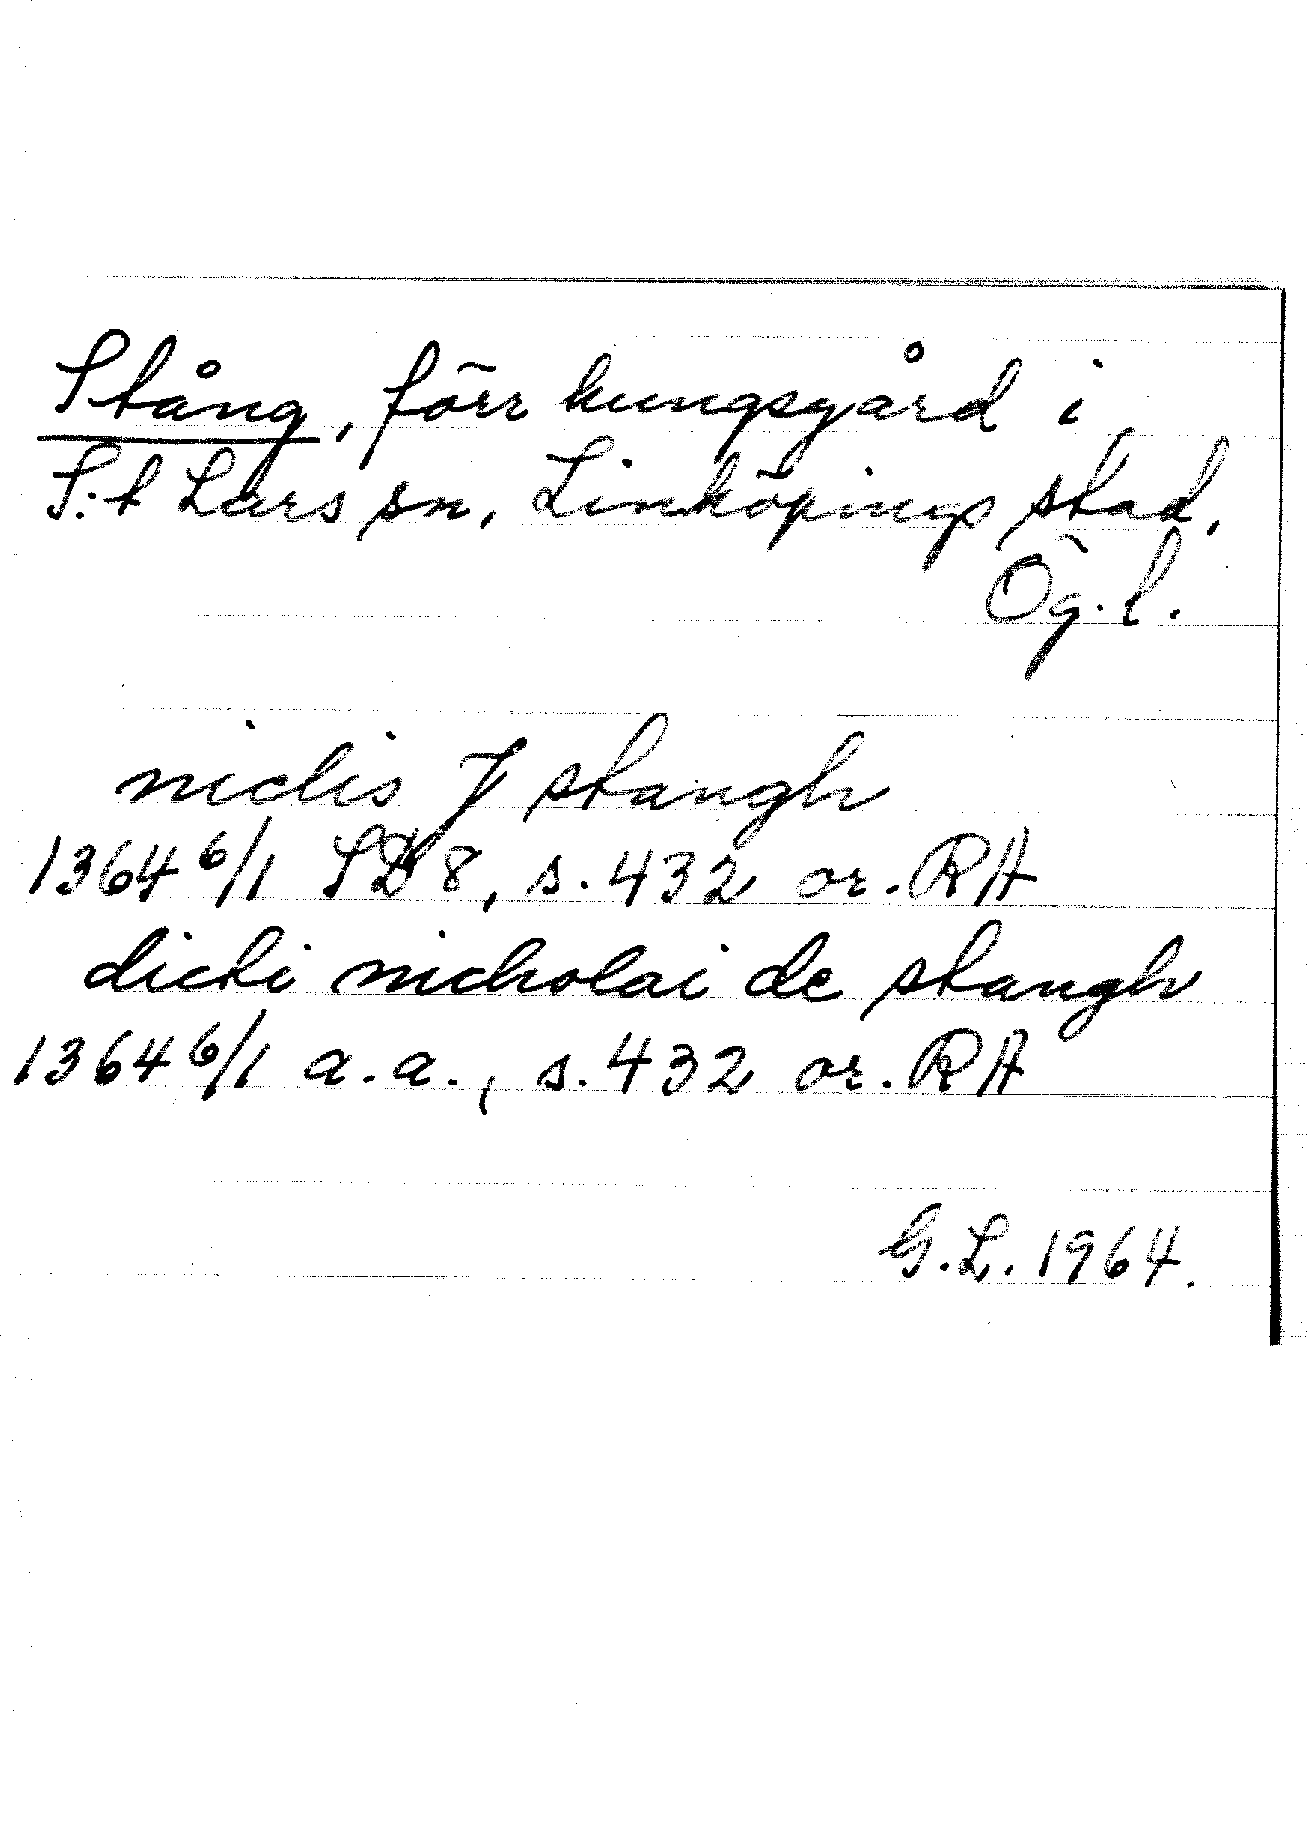 Stång, förr kungsgård i
S:t Lars sn, Linköpings stad,
Ög. l.
niclis J stangh
1364 6/1 SD 8, s. 432 or. RA
dicti nicholai de stangh
1364 6/1 a.a., s. 432 or. RA
G.L. 1964.